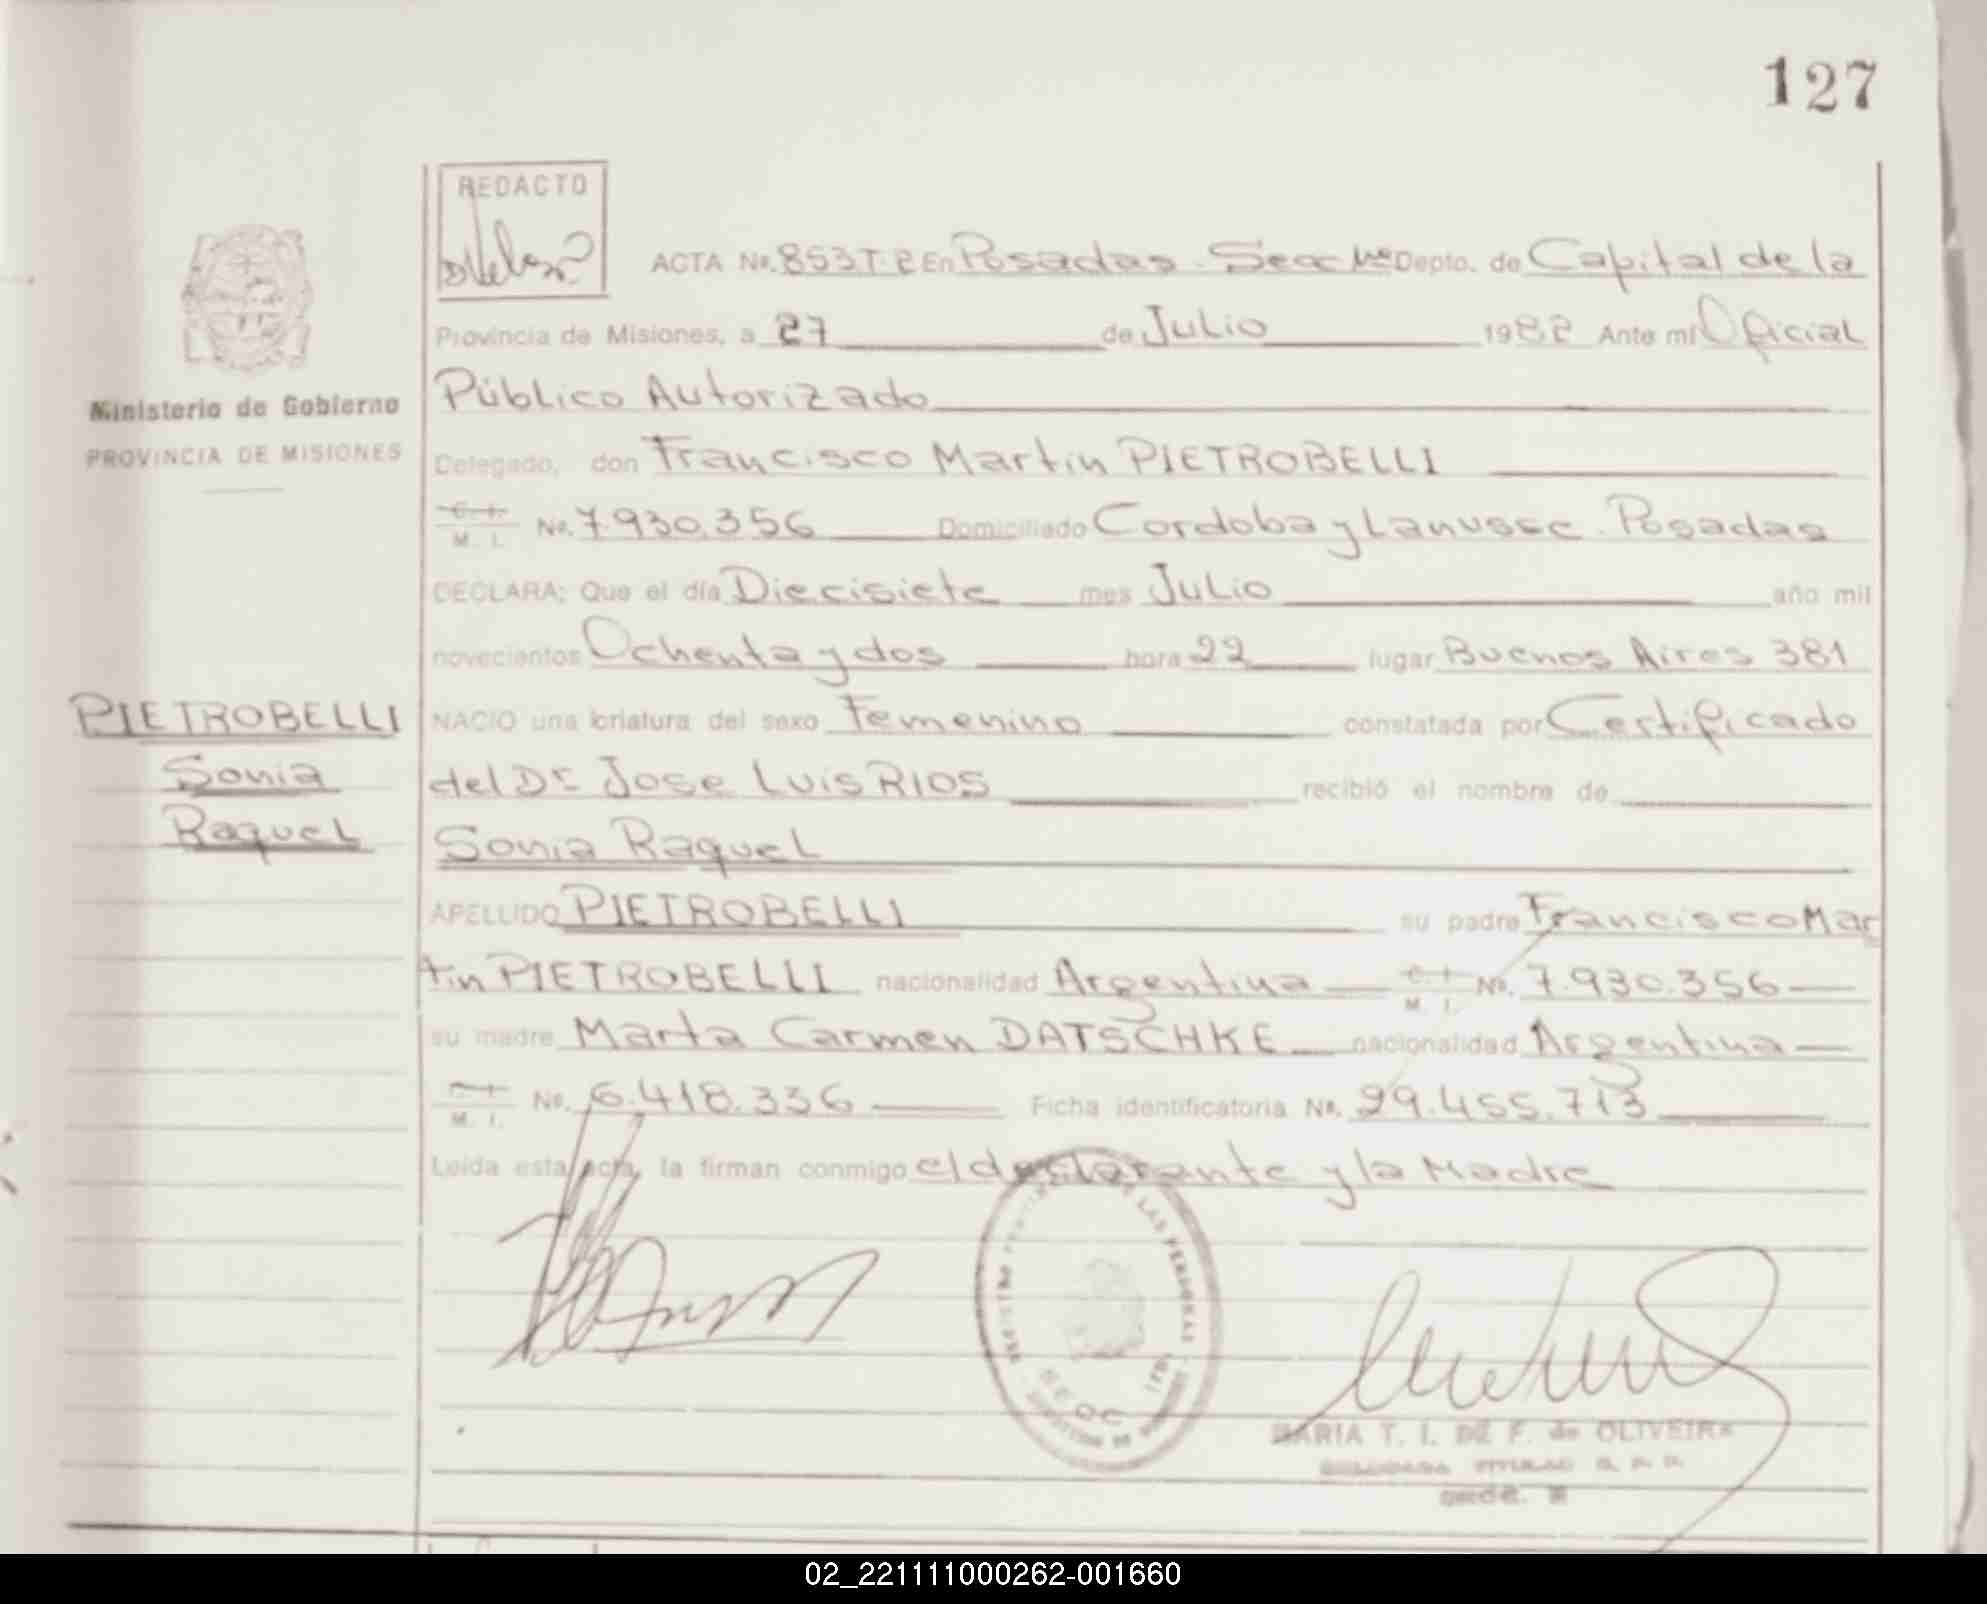 127
REDACTO
ACTA No. 853 T.2 En Posadas - Secc Depto. de Capital de la
Provincia de Misiones, a 27 de Julio 1982 Ante mí Oficial
Público Autorizado
Ministerio de Gobierno
PROVINCIA DE MISIONES
Delegado, don Francisco Martin PIETROBELLI
C. I.
M. I. No. 7.930.356 Domiciliado Cordoba y Lanusse - Posadas
DECLARA; Que el día Diecisiete mes Julio año mil
novecientos Ochenta y dos hora 22 lugar Buenos Aires 381
PIETROBELLI
Sonia
Raquel
NACIO una criatura del sexo Femenino constatada por Certificado
del Dr Jose Luis RIOS recibió el nombre de
Sonia Raquel
APELLIDO PIETROBELLI su padre Francisco Mar
tin PIETROBELLI nacionalidad Argentina C. I. M. I. No. 7.930.356
su madre Marta Carmen DATSCHKE nacionalidad Argentina
C. I.
M. I. No. 6.418.336 Ficha identificatoria No. 29.455.713
Leída esta acta, la firman conmigo el declarante y la Madre
DE LAS PERSONAS
MARIA T. I. DE F. de OLIVEIRA
02_221111000262-001660